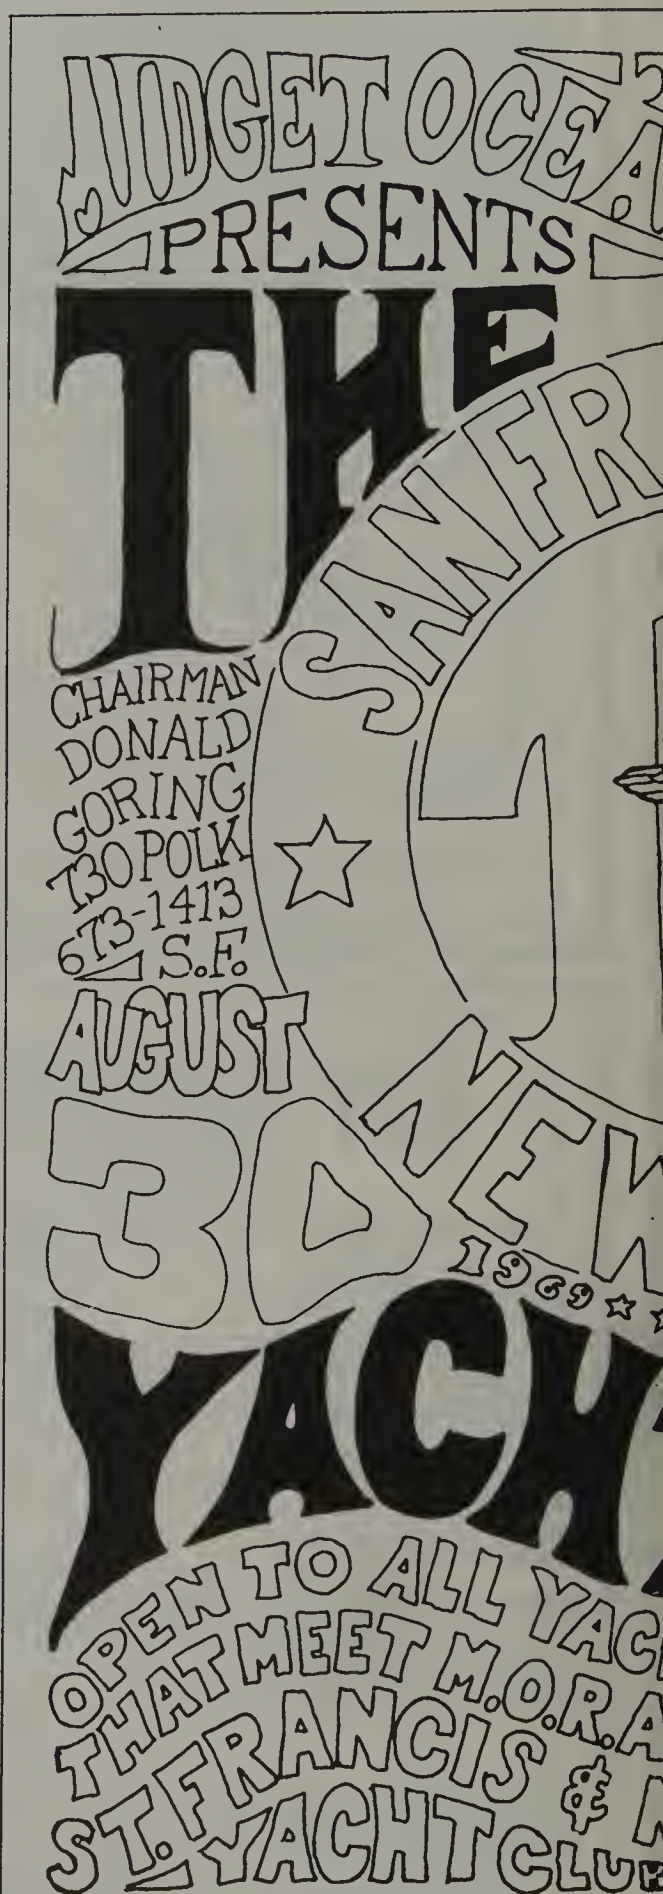 MIDGET OCEA
PRESENTS
THE
SAN FR
CHAIRMAN
DONALD
GORING
730 POLK
673-1413
S.F.
AUGUST
30
NEW
1969
YACH
OPEN TO ALL YAC
THAT MEET M.O.R.A
ST. FRANCIS &
YACHT CLU